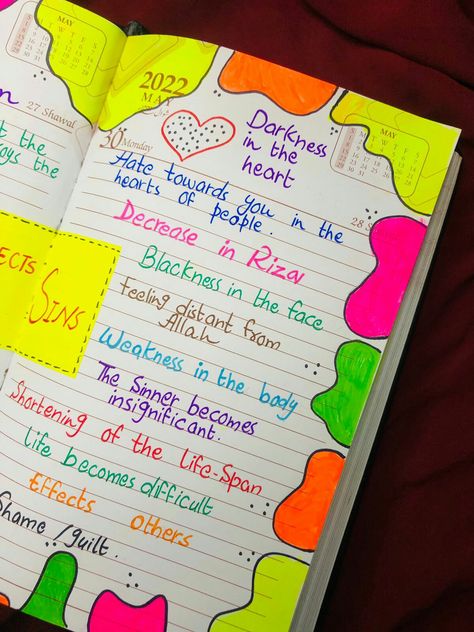 MAY
2022
MAY
MAY
27 Shawal
30 Monday
28 S
Darkness
in the
heart
Hate towards you in the
hearts of people.
Decrease in Rizq
Blackness in the face
Feeling distant from
Allah
Weakness in the body
The Sinner becomes
insignificant.
Shortening of the life-Span
life becomes difficult
Effects Others
Shame / guilt.
the
the
ECTS
SINS